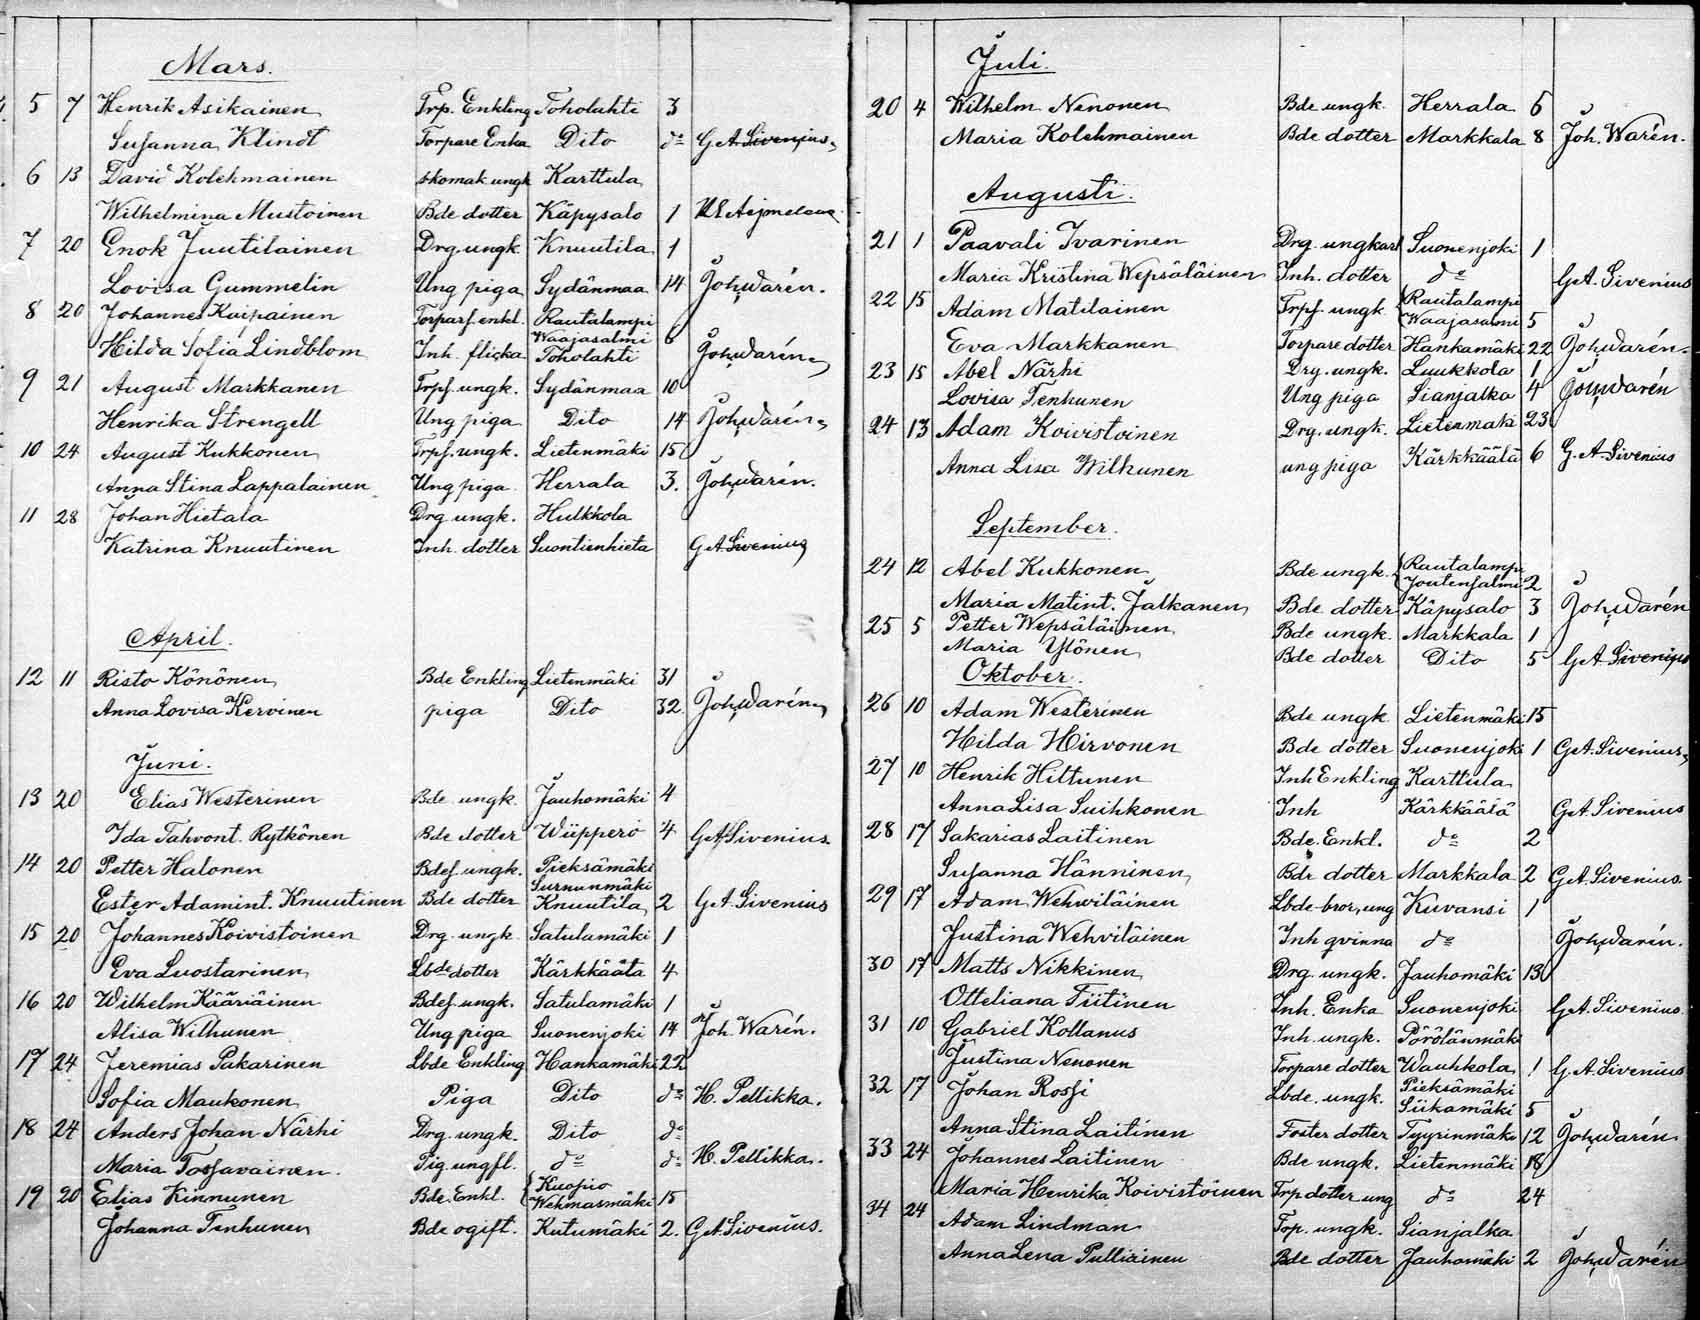 Mars.
5 7 Henrik Asikainen Trp. Enkling Toholahti 3
Susanna Klindt Torpare Enka Dito do G.A. Sivenius.
6 13 David Kolehmainen skomak. ungk Karttula
Wilhelmina Mustoinen Bde dotter Käpysalo 1
7 20 Enok Juutilainen Drg. ungk. Knuutila 1
Lovisa Gummelin Ung piga Sydänmaa 14 Joh. Warén.
8 20 Johannes Kaipainen Torpars. enkl. Rautalampi
Waajasalmi 6
Hilda Sofia Lindblom Inh. flicka Toholahti Joh. Warén.
9 21 August Markkanen Trps. ungk. Sydänmaa 10
Henrika Strengell Ung piga Dito 14 Joh. Warén.
10 24 August Kukkonen Trps. ungk. Lietenmäki 15
Anna Stina Lappalainen Ung piga Herrala 3. Joh. Warén.
11 28 Johan Hietala Drg. ungk. Hulkkola
Katrina Knuutinen Inh. dotter Suontienhieta G.A. Sivenius
April.
12 11 Risto Könönen Bde Enkling Lietenmäki 31
Anna Lovisa Kervinen piga Dito 32. Joh. Warén
Juni.
13 20 Elias Westerinen Bde. ungk. Jauhomäki 4
Ida Tahvont. Rytkönen Bde dotter Wiipperö 4 G.A. Sivenius.
14 20 Petter Halonen Bdes. ungk. Pieksämäki
Surnunmäki
Ester Adamint. Knuutinen Bde dotter Knuutila 2 G.A. Sivenius
15 20 Johannes Koivistoinen Drg. ungk. Satulamäki 1
Eva Luostarinen Lbde dotter Kärkkäälä 4
16 20 Wilhelm Kääriäinen Bdes. ungk. Satulamäki 1
Alisa Wilhunen Ung piga Suonenjoki 14 Joh. Warén.
17 24 Jeremias Pakarinen Lbde Enkling Hankamäki 22
Sofia Maukonen Piga Dito do H. Pellikka.
18 24 Anders Johan Närhi Drg. ungk. Dito do
Maria Tossavainen. Pig. ungfl. do do H. Pellikka.
19 20 Elias Kinnunen Bde. Enkl. Kuopio
Wehmasmäki 15
Johanna Tenhunen Bde ogift. Kutumäki 2. G.A. Sivenius.
Juli.
20 4 Wilhelm Nenonen Bde ungk. Herrala 6
Maria Kolehmainen Bde dotter Markkala 8 Joh. Warén.
Augusti.
21 1 Paavali Ivarinen Drg. ungkarl Suonenjoki 1
Maria Kristina Wepsäläinen Inh. dotter do G.A. Sivenius
22 15 Adam Matilainen Trps. ungk. Rautalampi
Waajasalmi 5
Eva Markkanen Torpare dotter Hankamäki 22 Joh. Warén.
23 15 Abel Närhi Drg. ungk. Luukkola 1
Lovisa Tenhunen Ung piga Sianjalka 4 Joh. Warén
24 13 Adam Koivistoinen Drg. ungk. Lietenmäki 23
Anna Lisa Wilhunen ung piga Kärkkäälä 6 G.A. Sivenius
September.
24 12 Abel Kukkonen Bde ungk. Rautalampi
Joutensalmi 2
Maria Matint. Jalkanen Bde dotter Käpysalo 3 Joh. Warén
25 5 Petter Wepsäläinen Bde ungk. Markkala 1
Maria Ylönen Bde dotter Dito 5 G.A. Sivenius
Oktober.
26 10 Adam Westerinen Bde ungk Lietenmäki 15
Hilda Hirvonen Bde dotter Suonenjoki 1 G.A. Sivenius
27 10 Henrik Hiltunen Inh Enkling Karttula
Anna Lisa Suihkonen Inh Kärkkäälä G.A. Sivenius
28 17 Sakarias Laitinen Bde. Enkl. do 2
Susanna Hänninen Bde dotter Markkala 2 G.A. Sivenius.
29 17 Adam Wehviläinen Lbde bror, ung Kuvansi 1
Justina Wehviläinen Inh qvinna do Joh. Warén.
30 17 Matts Nikkinen Drg. ungk. Jauhomäki 13
Otteliana Tiitinen Inh. Enka Suonenjoki G.A. Sivenius.
31 10 Gabriel Kollanus Inh. ungk. Pörölänmäki
Justina Nenonen Torpare dotter Wauhkola 1 G.A. Sivenius
32 17 Johan Rossi Lbde. ungk. Pieksämäki
Siikamäki 5
Anna Stina Laitinen Foster dotter Tyyrinmäki 12 Joh. Warén.
33 24 Johannes Laitinen Bde ungk. Lietenmäki 18
Maria Henrika Koivistoinen Trp dotter ung do 24
34 24 Adam Lindman Torp. ungk. Sianjalka
Anna Lena Pulliainen Bde dotter Jauhomäki 2 Joh. Warén